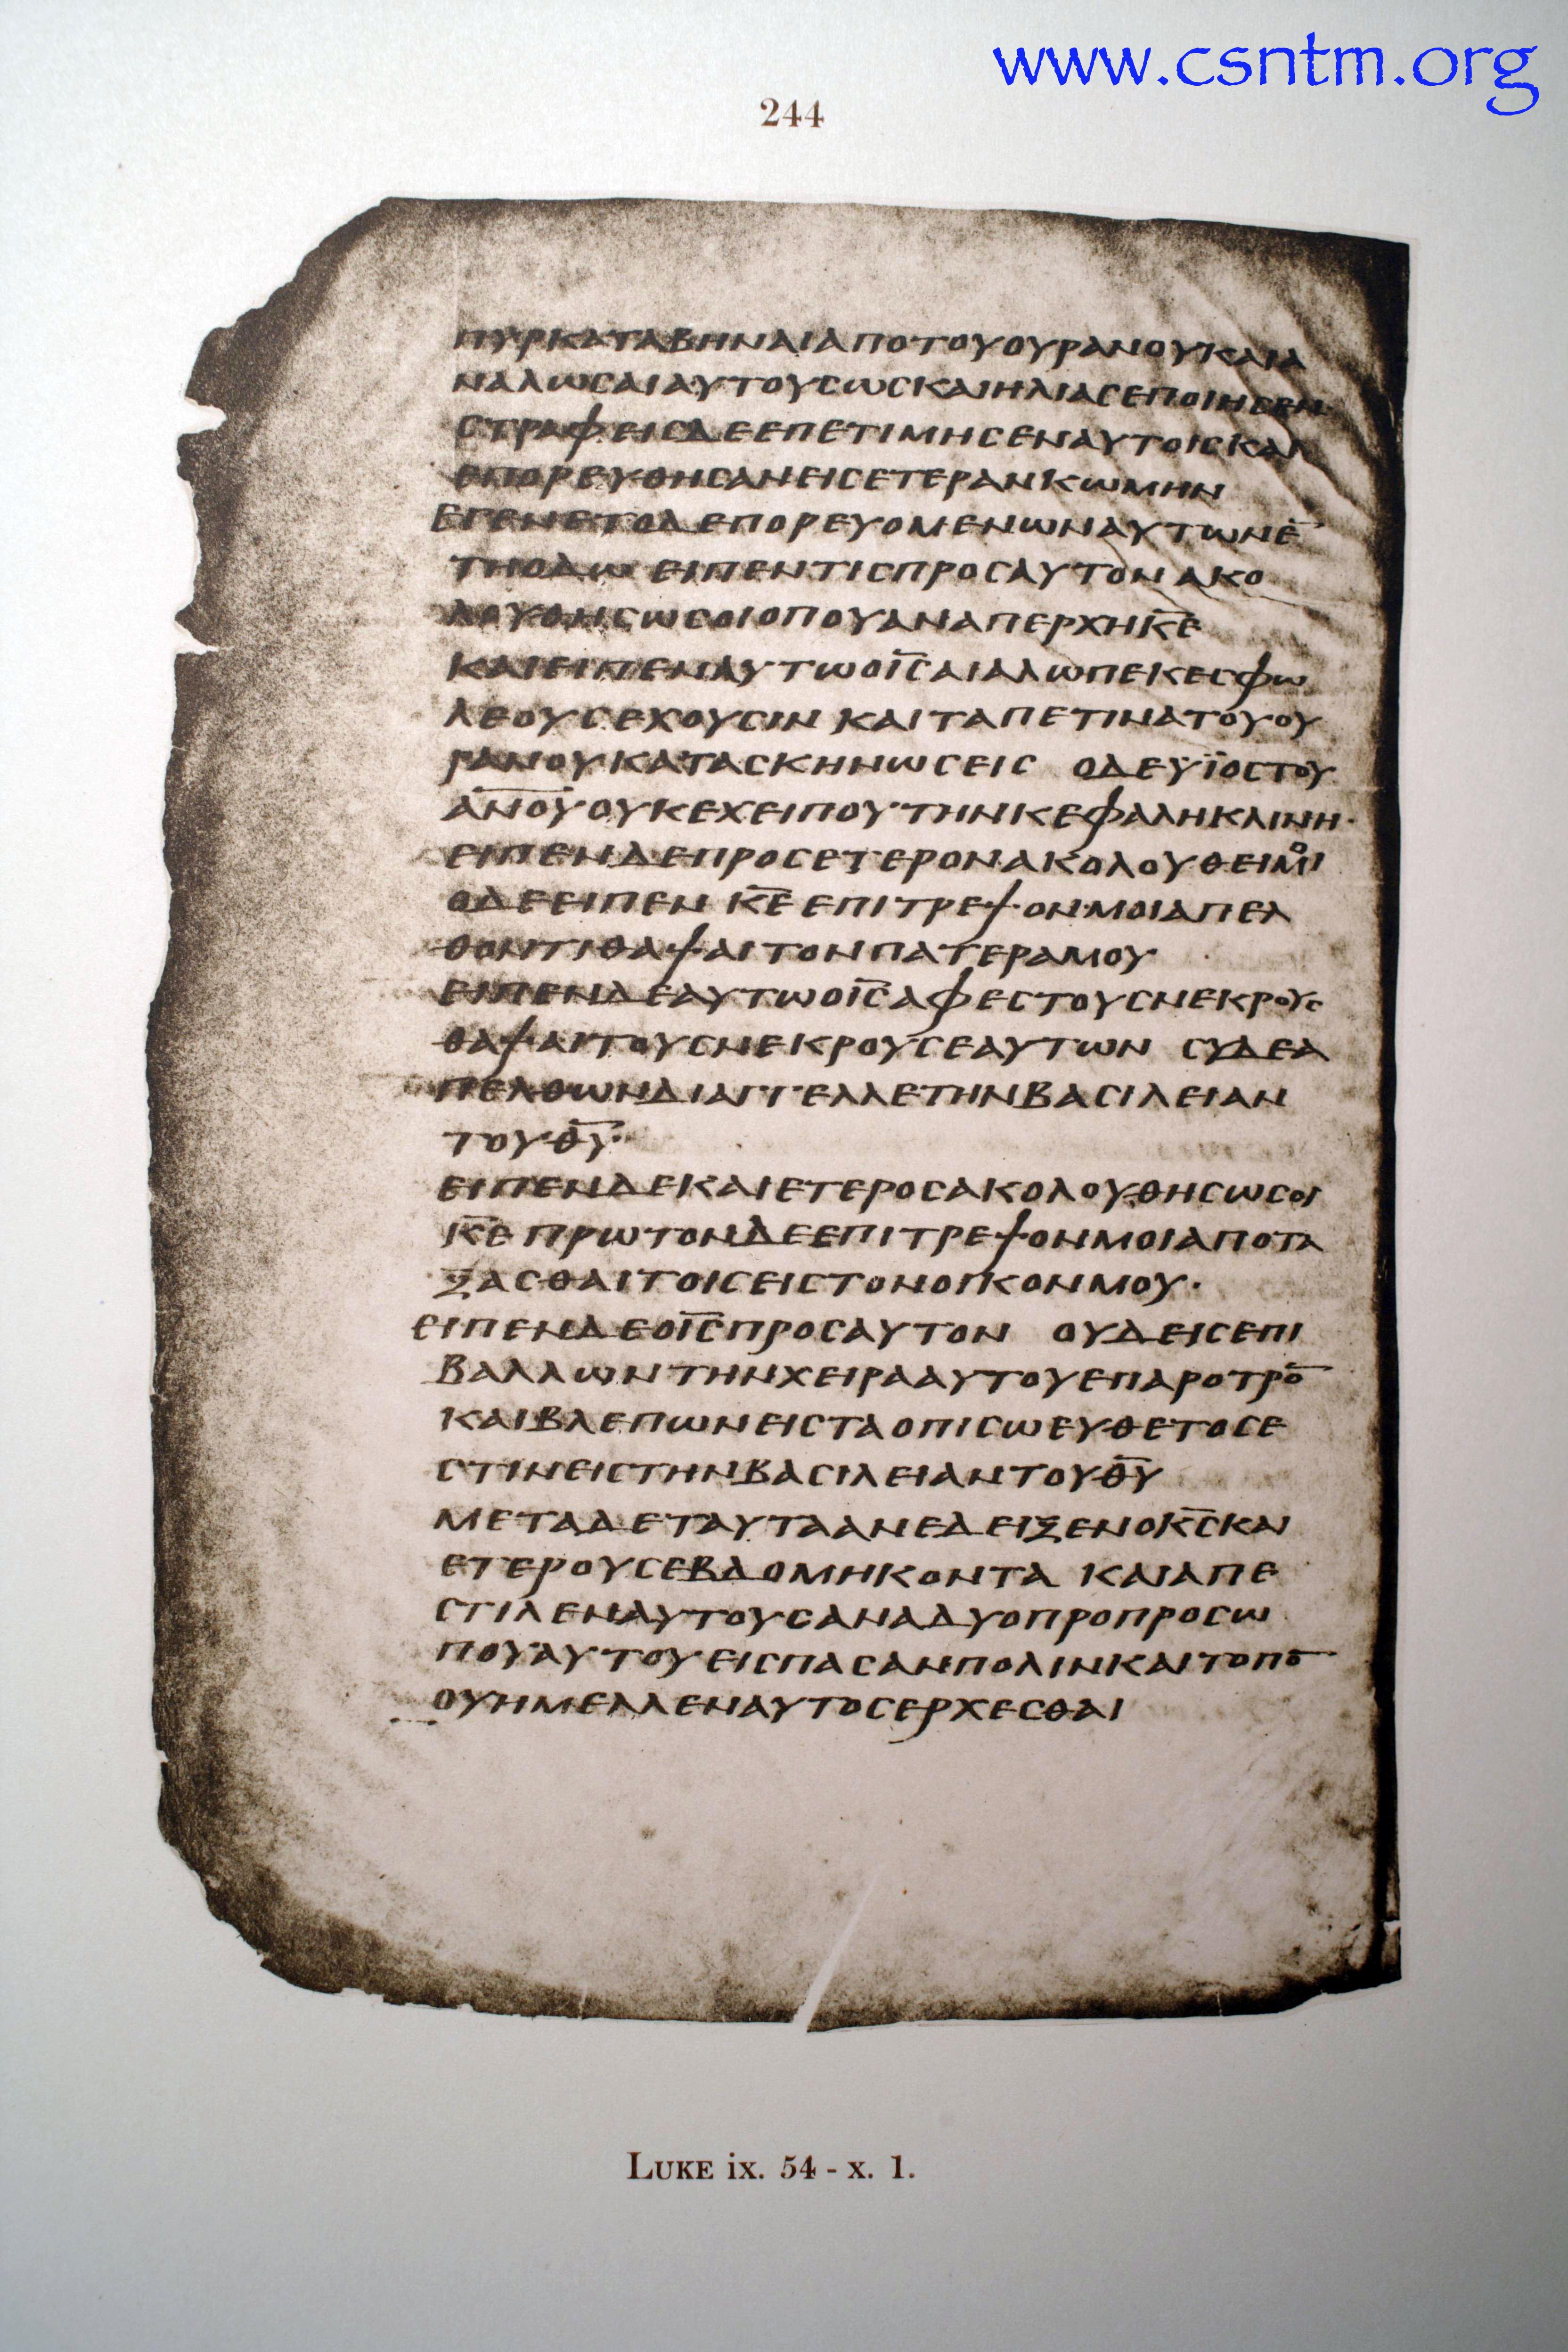 www.csntm.org
244
ΠΥΡΚΑΤΑΒΗΝΑΙΑΠΟΤΟΥΟΥΡΑΝΟΥΚΑΙΑ
ΝΑΛΩCΑΙΑΥΤΟΥCΩCΚΑΙΗΛΙΑCΕΠΟΙΗCΕΝ
CΤΡΑΦΕΙCΔΕΕΠΕΤΙΜΗCΕΝΑΥΤΟΙCΚΑΙ
ΕΠΟΡΕΥΘΗCΑΝΕΙCΕΤΕΡΑΝΚΩΜΗΝ
ΕΓΕΝΕΤΟΔΕΠΟΡΕΥΟΜΕΝΩΝΑΥΤΩΝΕ̅
ΤΗΟΔΩ ΕΙΠΕΝΤΙCΠΡΟCΑΥΤΟΝΑΚΟ
ΛΟΥΘΗCΩCΟΙΟΠΟΥΑΝΑΠΕΡΧΗΚ̅Ε̅
ΚΑΙΕΙΠΕΝΑΥΤΩΟΙ̅C̅ΑΙΑΛΩΠΕΚΕCΦΩ
ΛΕΟΥCΕΧΟΥCΙΝ ΚΑΙΤΑΠΕΤΙΝΑΤΟΥΟΥ
ΡΑΝΟΥΚΑΤΑCΚΗΝΩCΕΙC ΟΔΕΥΪΟCΤΟΥ
Α̅Ν̅Ο̅Υ̅ΟΥΚΕΧΕΙΠΟΥΤΗΝΚΕΦΑΛΗΚΛΙΝΗ·
ΕΙΠΕΝΔΕΠΡΟCΕΤΕΡΟΝΑΚΟΛΟΥΘΕΙΜΟΙ
ΟΔΕΕΙΠΕΝ Κ̅Ε̅ΕΠΙΤΡΕΨΟΝΜΟΙΑΠΕΛ
ΘΟΝΤΙΘΑΨΑΙΤΟΝΠΑΤΕΡΑΜΟΥ
ΕΙΠΕΝΔΕΑΥΤΩΟΙ̅C̅ΑΦΕCΤΟΥCΝΕΚΡΟΥC
ΘΑΨΑΙΤΟΥCΝΕΚΡΟΥCΕΑΥΤΩΝ CΥΔΕΑ
ΠΕΛΘΩΝΔΙΑΓΓΕΛΛΕΤΗΝΒΑCΙΛΕΙΑΝ
ΤΟΥΘ̅Υ̅·
ΕΙΠΕΝΔΕΚΑΙΕΤΕΡΟCΑΚΟΛΟΥΘΗCΩCΟΙ
Κ̅Ε̅ ΠΡΩΤΟΝΔΕΕΠΙΤΡΕΨΟΝΜΟΙΑΠΟΤΑ
ΞΑCΘΑΙΤΟΙCΕΙCΤΟΝΟΙΚΟΝΜΟΥ·
ΕΙΠΕΝΔΕΟΙ̅C̅ΠΡΟCΑΥΤΟΝ ΟΥΔΕΙCΕΠΙ
ΒΑΛΛΩΝΤΗΝΧΕΙΡΑΑΥΤΟΥΕΠΑΡΟΤΡΟ̅
ΚΑΙΒΛΕΠΩΝΕΙCΤΑΟΠΙCΩΕΥΘΕΤΟCΕ
CΤΙΝΕΙCΤΗΝΒΑCΙΛΕΙΑΝΤΟΥΘ̅Υ̅
ΜΕΤΑΔΕΤΑΥΤΑΑΝΕΔΕΙΞΕΝΟΚ̅C̅ΚΑΙ
ΕΤΕΡΟΥCΕΒΔΟΜΗΚΟΝΤΑ ΚΑΙΑΠΕ
CΤΙΛΕΝΑΥΤΟΥCΑΝΑΔΥΟΠΡΟΠΡΟCΩ
ΠΟΥΑΥΤΟΥΕΙCΠΑCΑΝΠΟΛΙΝΚΑΙΤΟΠΟ̅
ΟΥΗΜΕΛΛΕΝΑΥΤΟCΕΡΧΕCΘΑΙ
LUKE ix. 54 - x. 1.